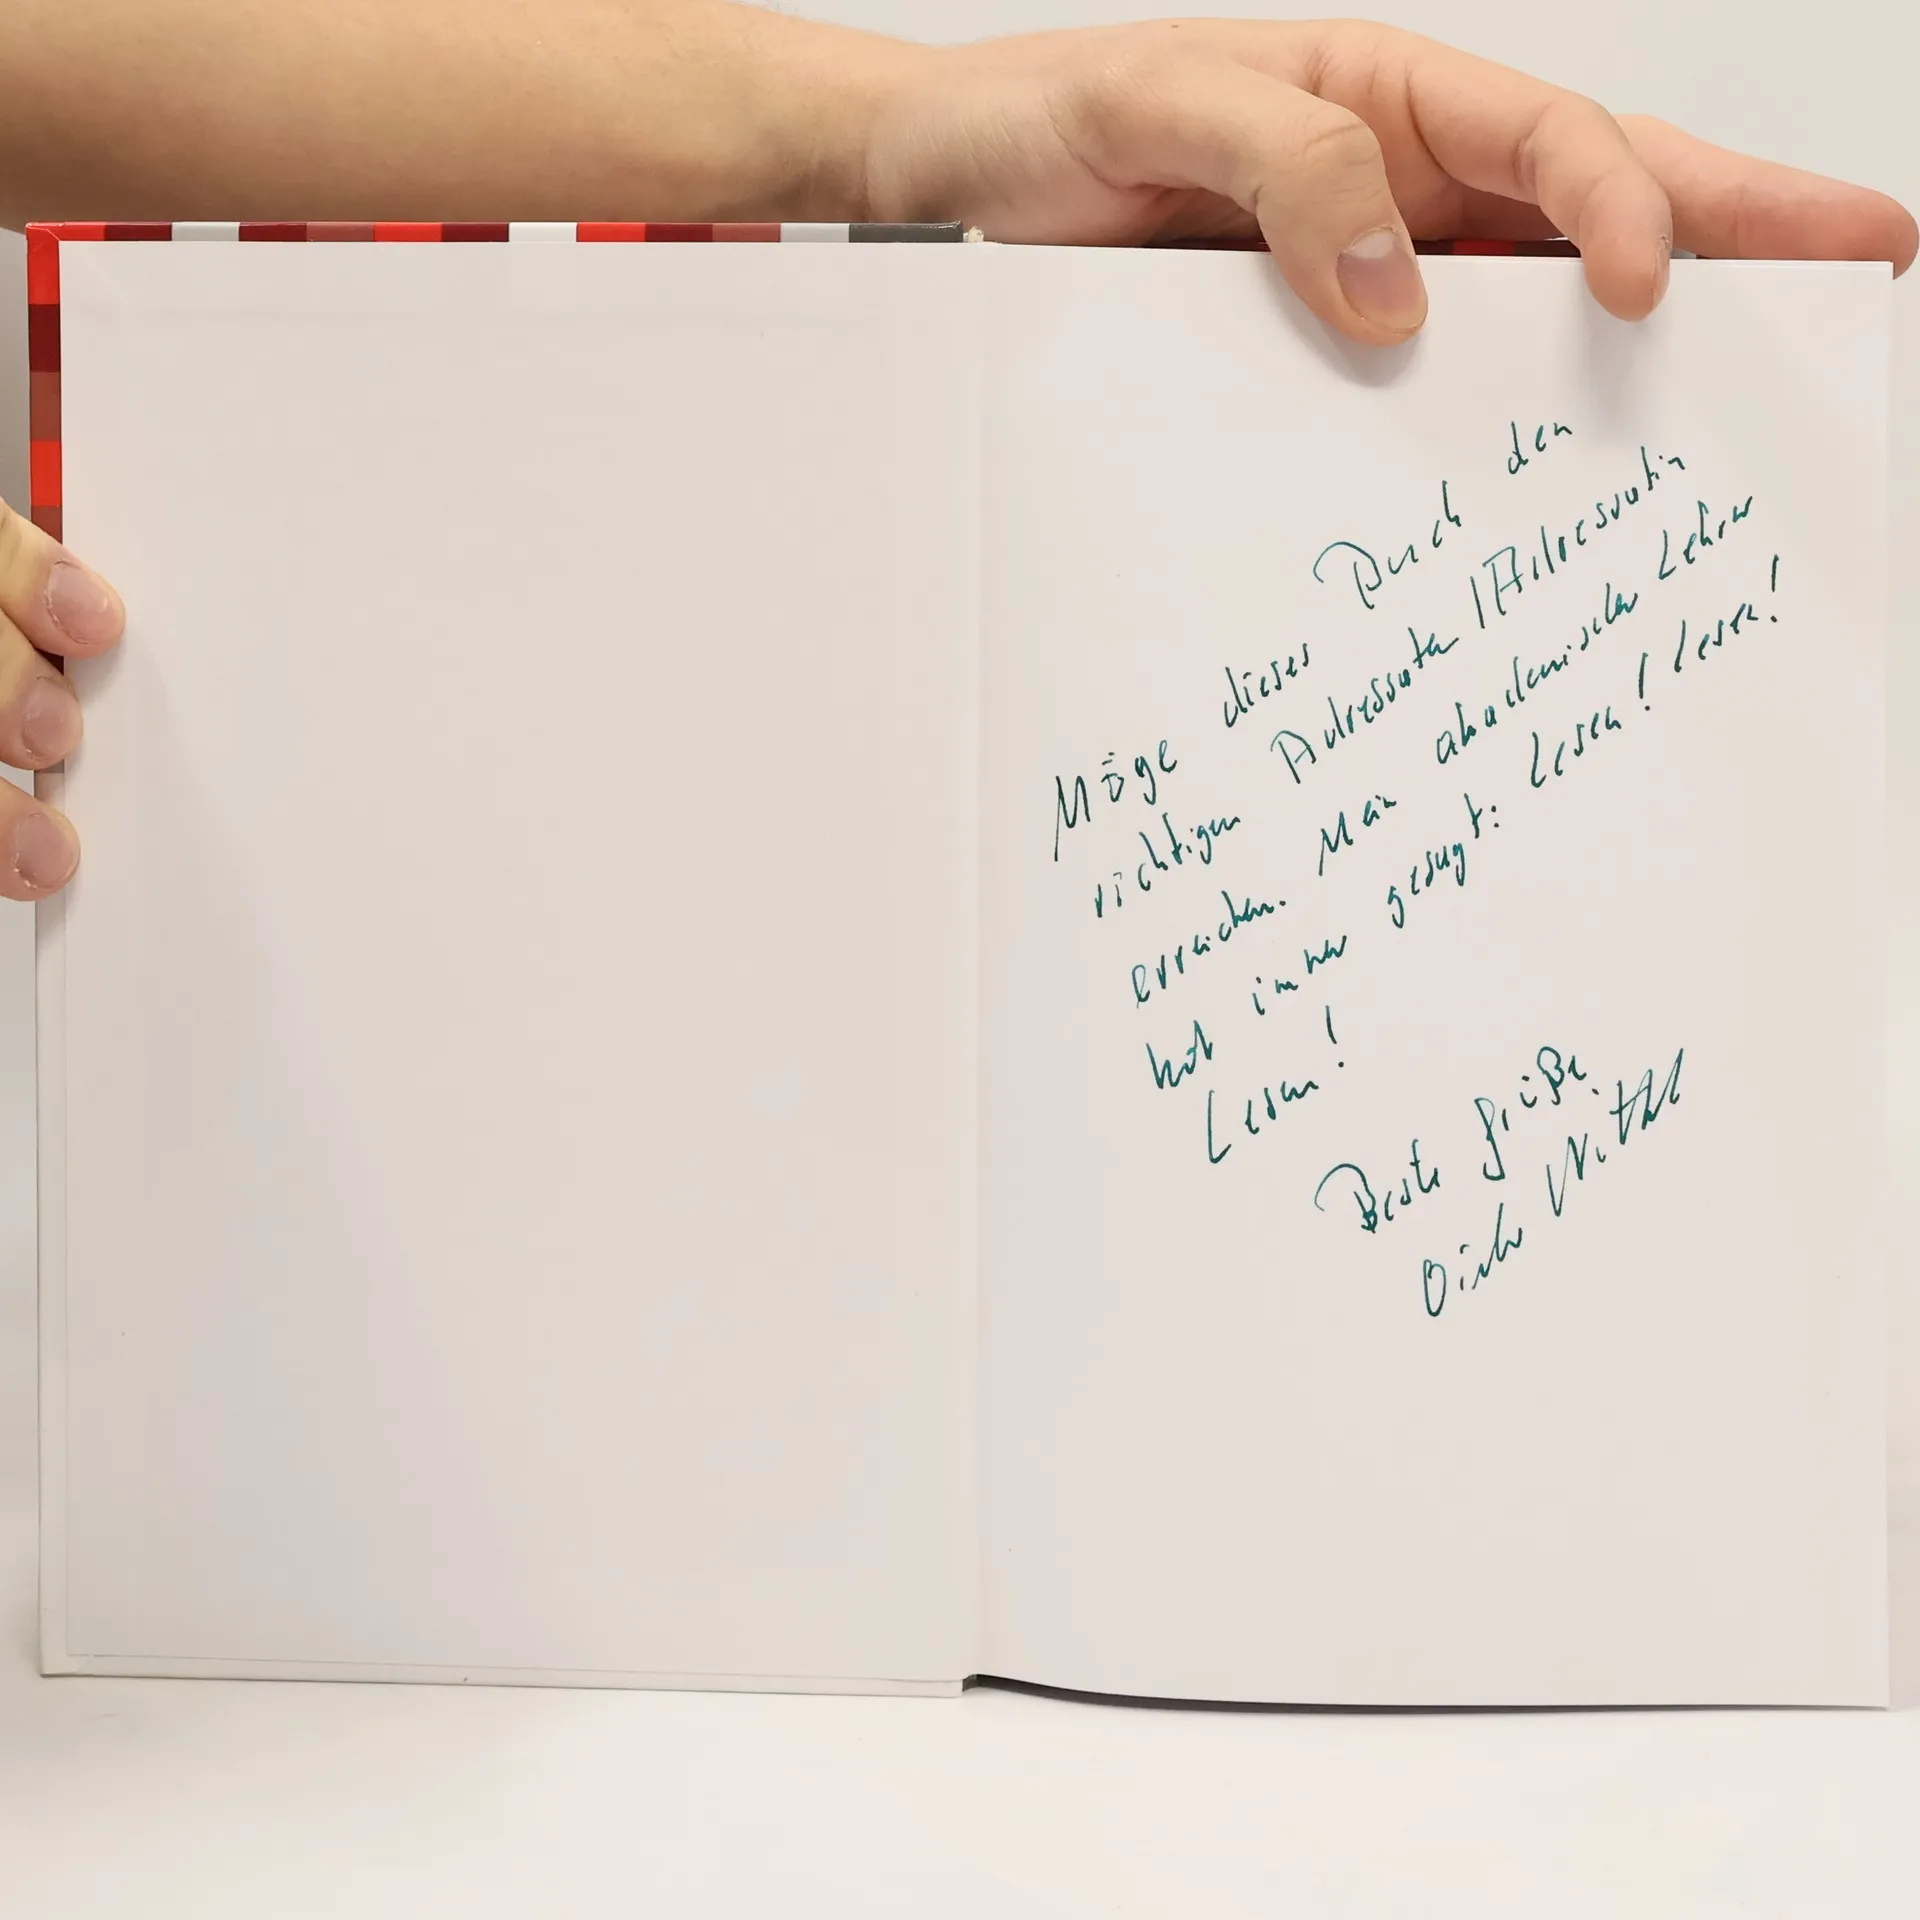 Möge dieses Buch den
richtigen Adressaten / Adressatin
erreichen. Mein akademischer Lehrer
hat immer gesagt: Lesen! Lesen!
Lesen!
Beste Grüße